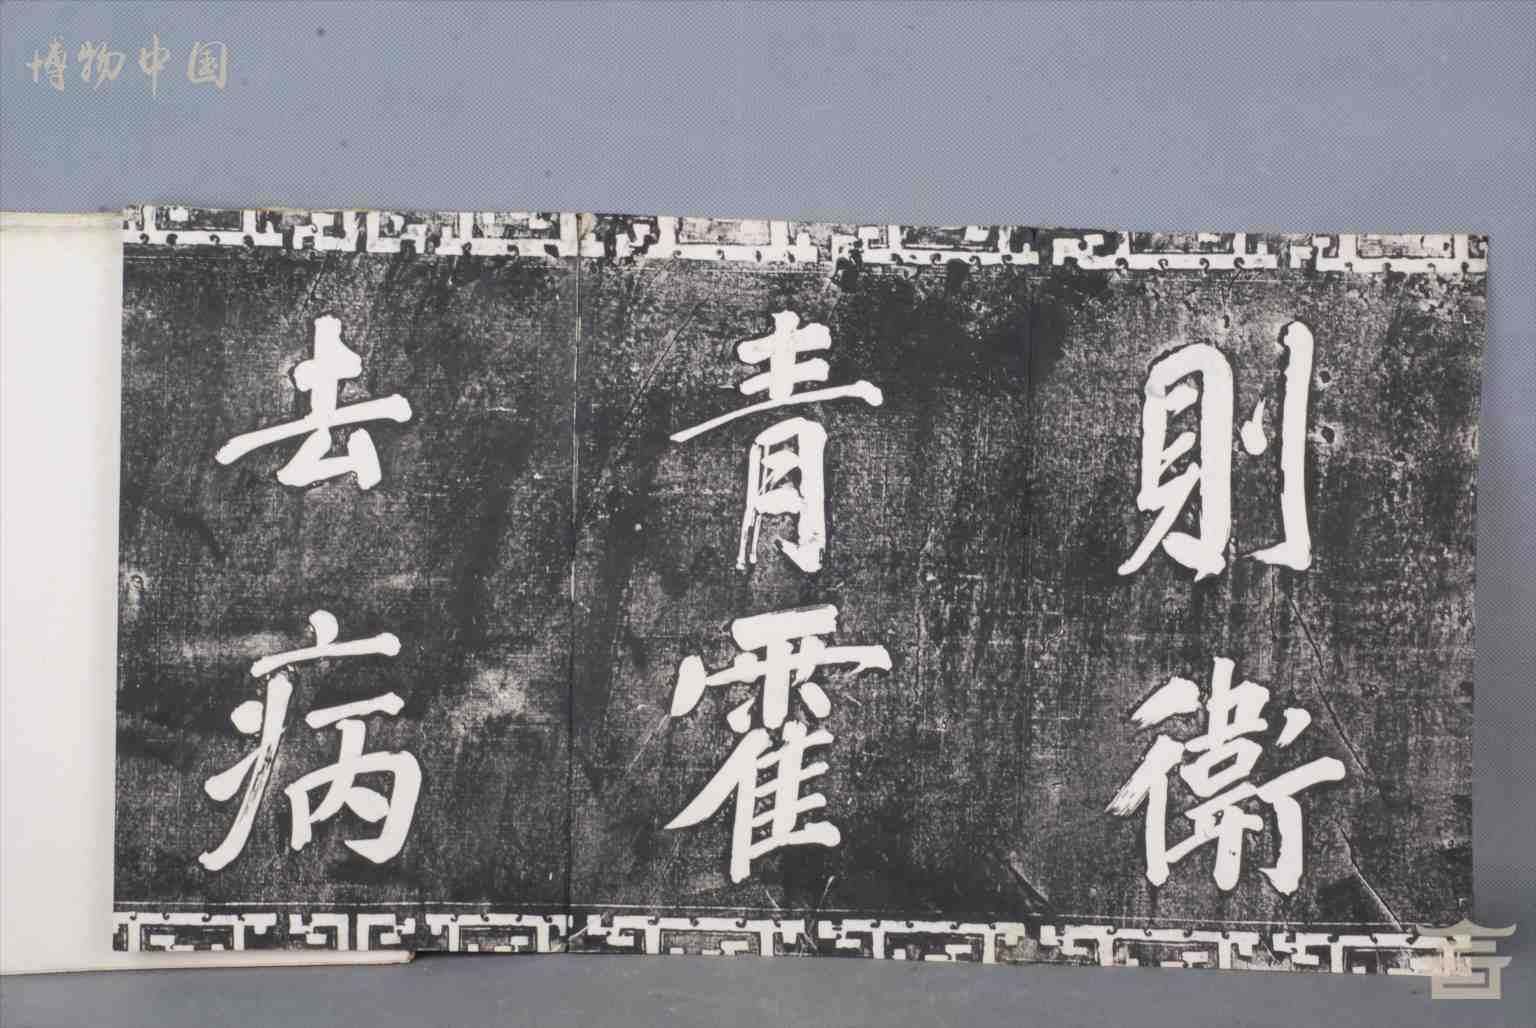 博物中国
則衛
青霍
去病